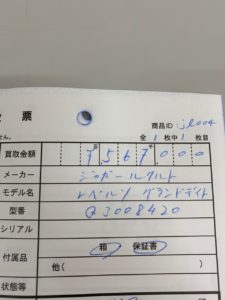 票
商品ID：jl004
せん。
全 1 枚中 1 枚目
買取金額 1,567,000
メーカー ジャガールクルト
モデル名 レベルソ グランドデイト
型番 Q3008420
シリアル
付属品 箱 保証書
他（
状態等